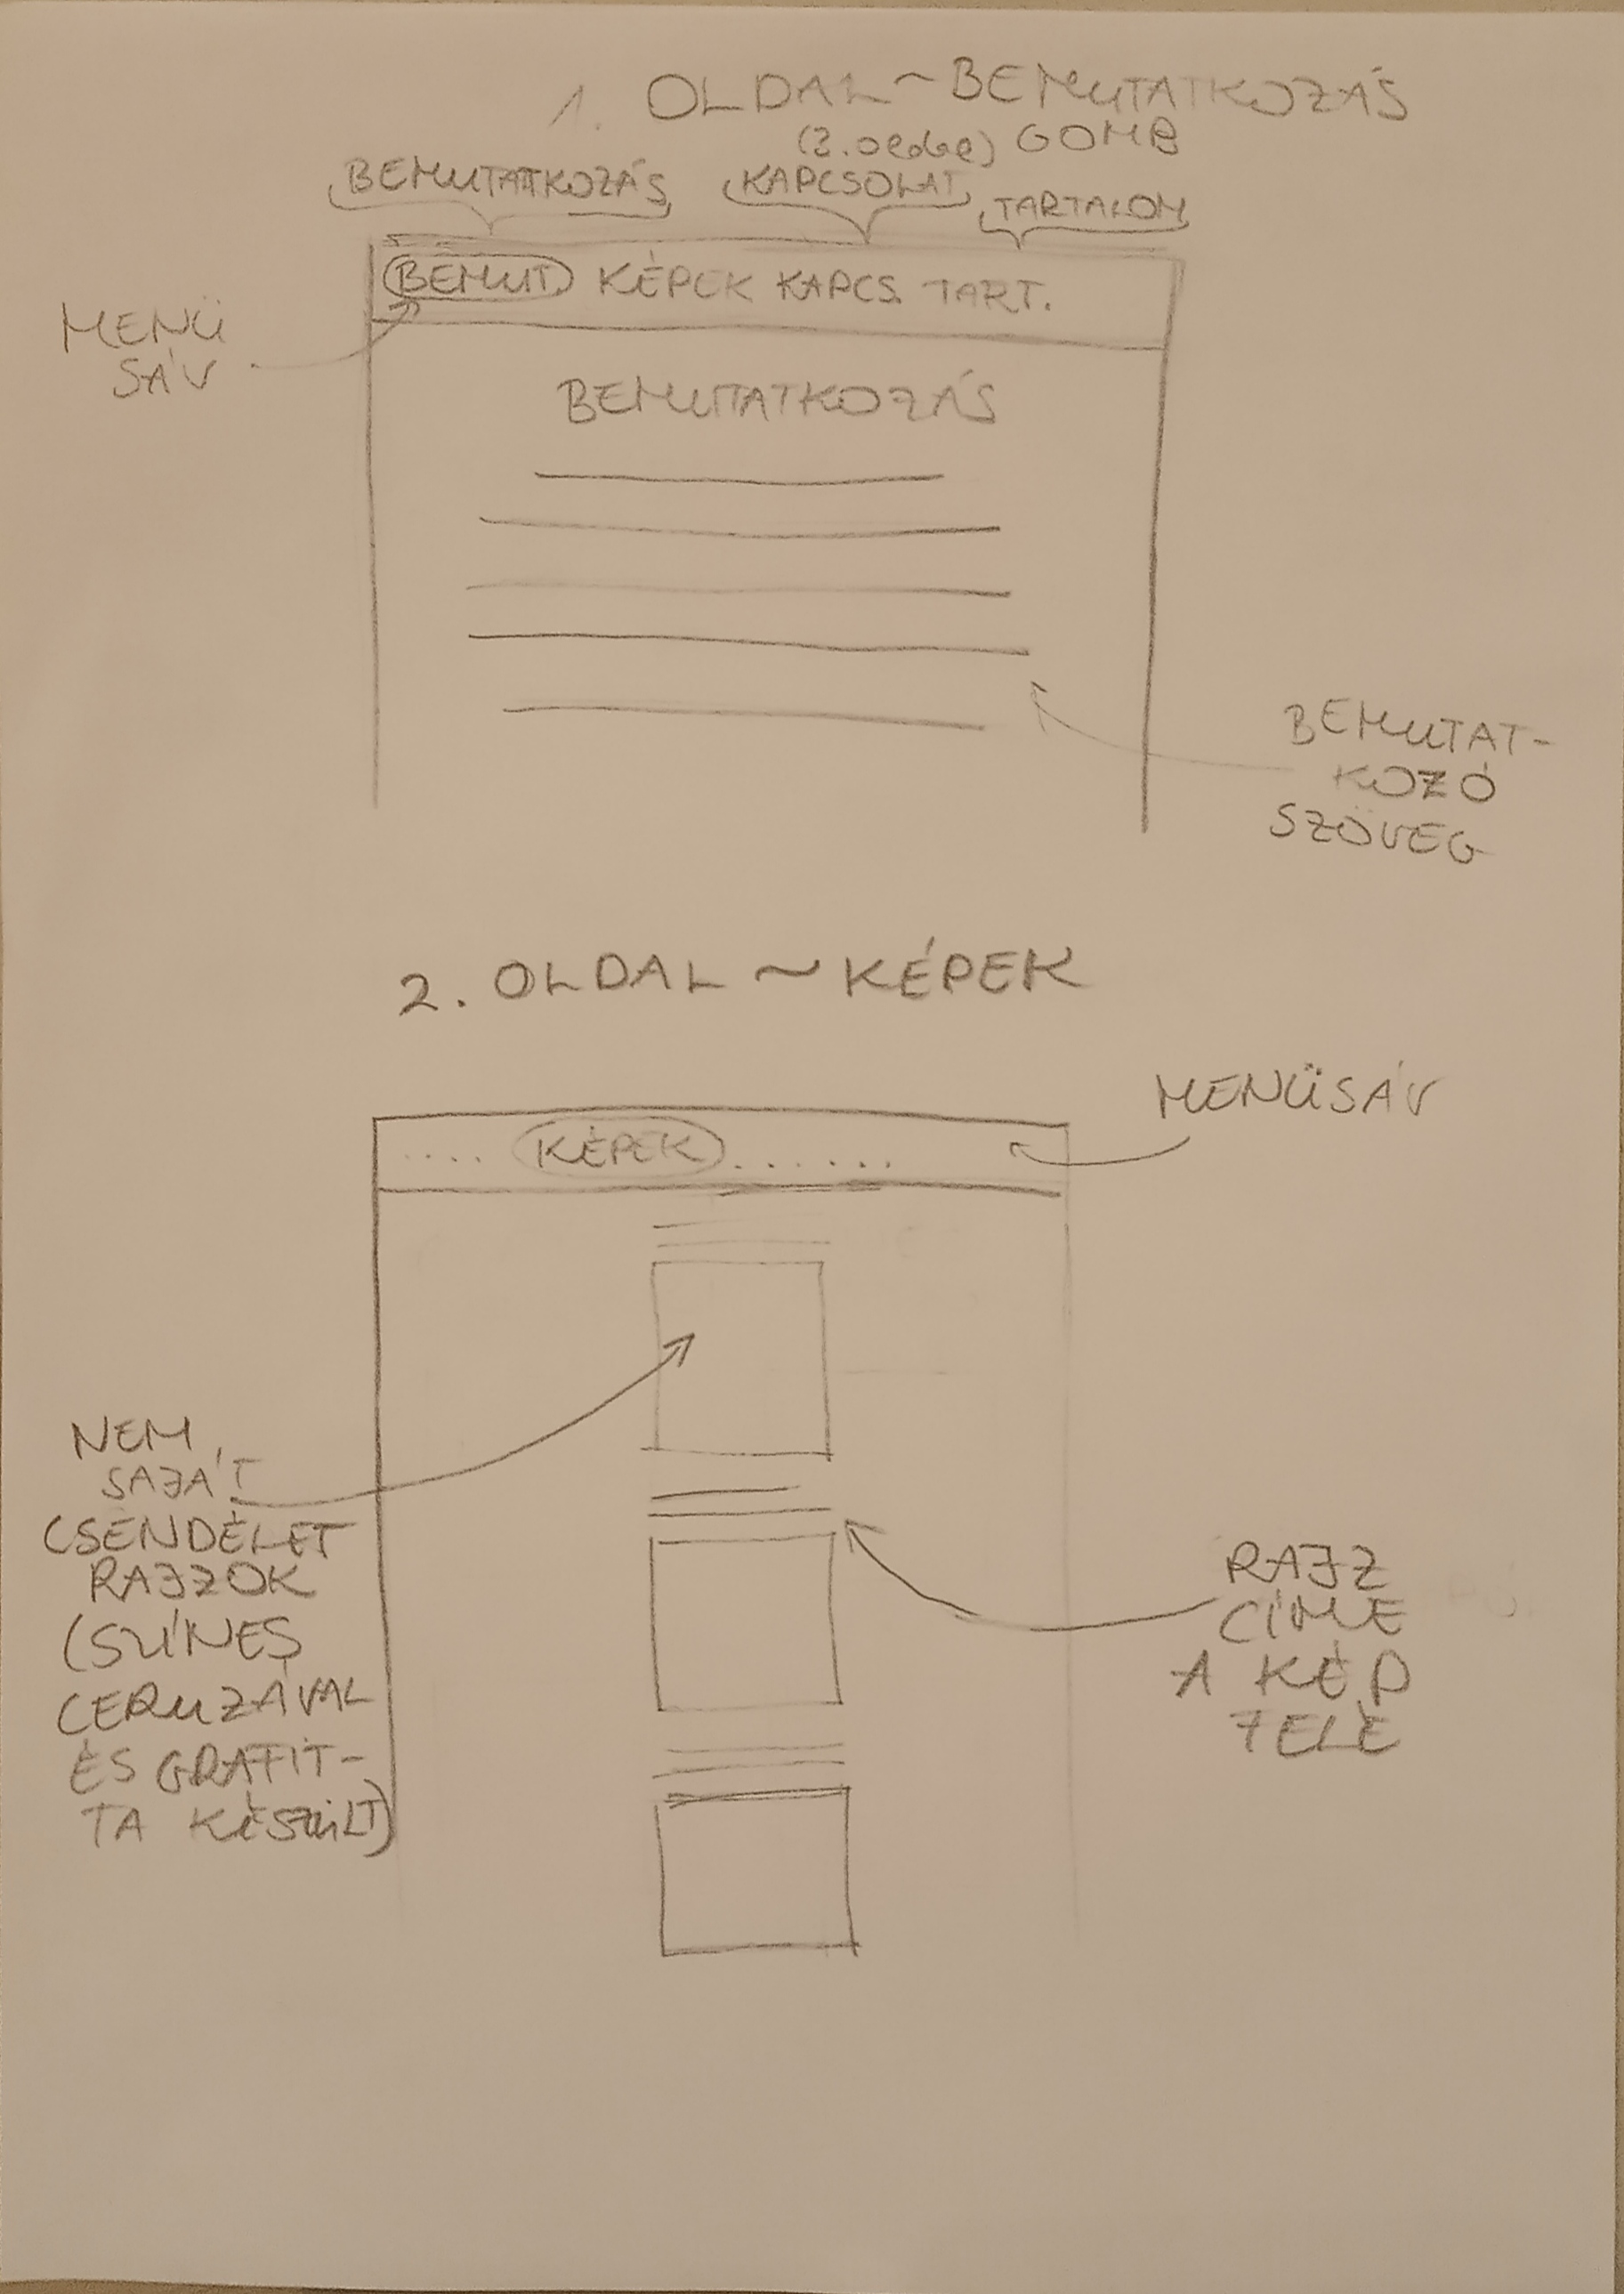 1. OLDAL ~ BEMUTATKOZÁS
(2. oldal) GOMB
BEMUTATKOZÁS KAPCSOLAT TARTALOM
BEMUT KÉPEK KAPCS. TART.
MENÜ
SÁV
BEMUTATKOZÁS
BEMUTAT-
KOZÓ
SZÖVEG
2. OLDAL ~ KÉPEK
MENÜSÁV
.... KÉPEK .......
NEM
SAJÁT
CSENDÉLET
RAJZOK
(SZÍNES
CERUZÁVAL
ÉS GRAFIT-
TA KÉSZÜLT)
RAJZ
CÍME
A KÉP
FELÉ